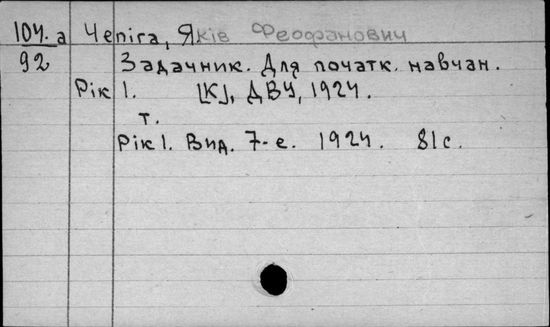 104.а Чепіга, Яків Феофанович
92 Задачник. Для початк. навчан.
Рік 1. [К], ДВУ, 1924.
т.
Рік 1. Вид. 7-е. 1924. 81 с.